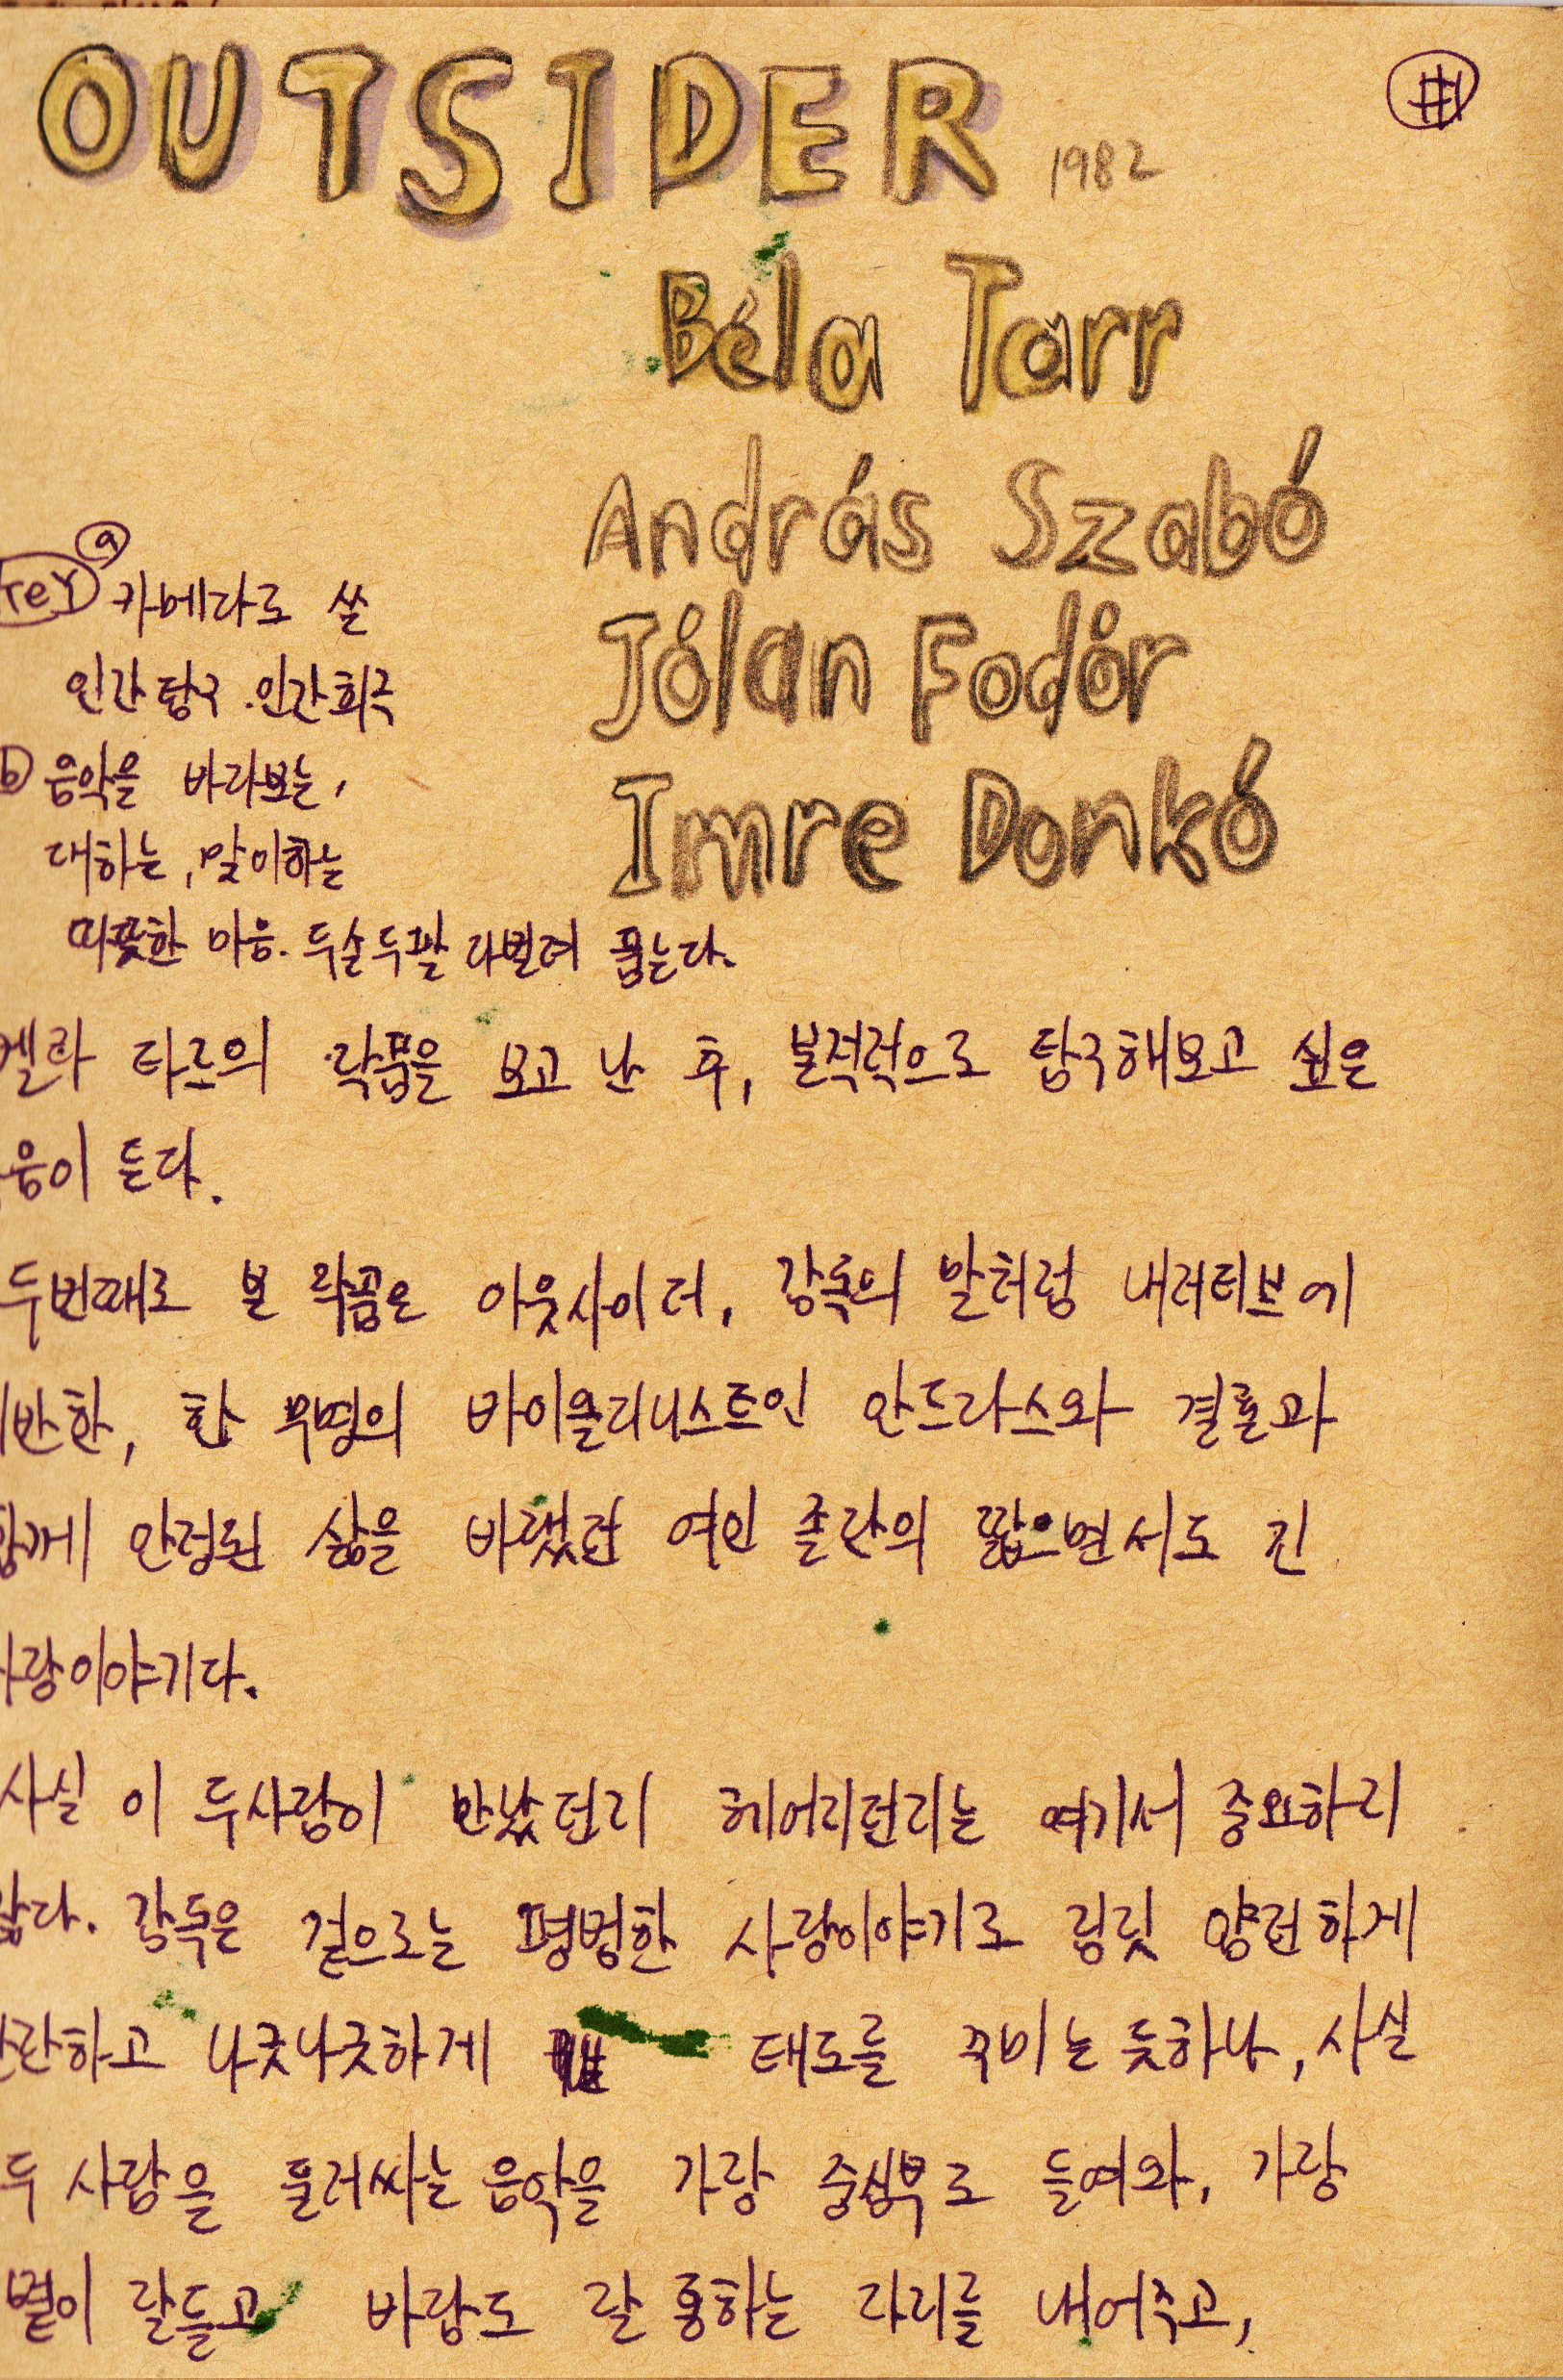 OUTSIDER 1982
Béla Tarr
András Szabó
Jólan Fodór
Imre Donkó
ⓐ 카메라로 쓴
인간탐구. 인간희극
ⓑ 음악을 바라보는,
대하는, 맞이하는
따뜻한 마음. 두손두팔 다벌려 품는다.
벨라 타르의 작품을 보고 난 후, 본격적으로 탐구해보고 싶은
음이 든다.
두번째로 본 작품은 아웃사이더. 감독의 말처럼 내러티브에
반한, 한 무명의 바이올리니스트인 안드라스와 결혼과
함께 안정된 삶을 바랬던 여인 졸란의 짧으면서도 긴
사랑이야기다.
사실 이 두사람이 만났던지 헤어지던지는 여기서 중요하지
않다. 감독은 겉으로는 평범한 사랑이야기로 짐짓 얌전하게
하고 나긋나긋하게 태도를 꾸미는 듯하나, 사실
두 사람을 둘러싸는 음악을 가장 중심부로 들여와, 가장
볕이 잘들고 바람도 잘 통하는 자리를 내어주고,